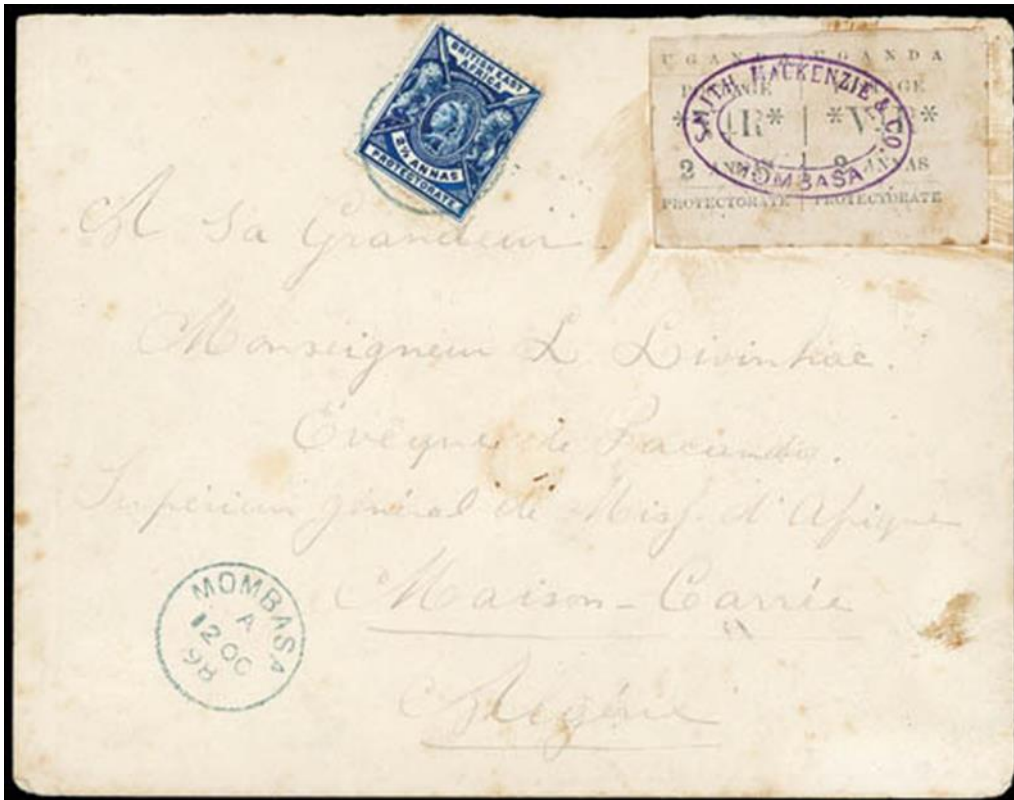 BRITISH EAST
AFRICA
2½ ANNAS
PROTECTORATE
UGANDA UGANDA
POSTAGE POSTAGE
*V*R* *V*R*
2 ANNAS 2 ANNAS
PROTECTORATE PROTECTORATE
SMITH MACKENZIE & CO.
MOMBASA
A Sa Grandeur
Monseigneur L Livinhac.
Évêque de Pacando.
Supérieur général de Miss. d'Afrique
Maison-Carrée
Algérie
MOMBASA
A
12 OC
98